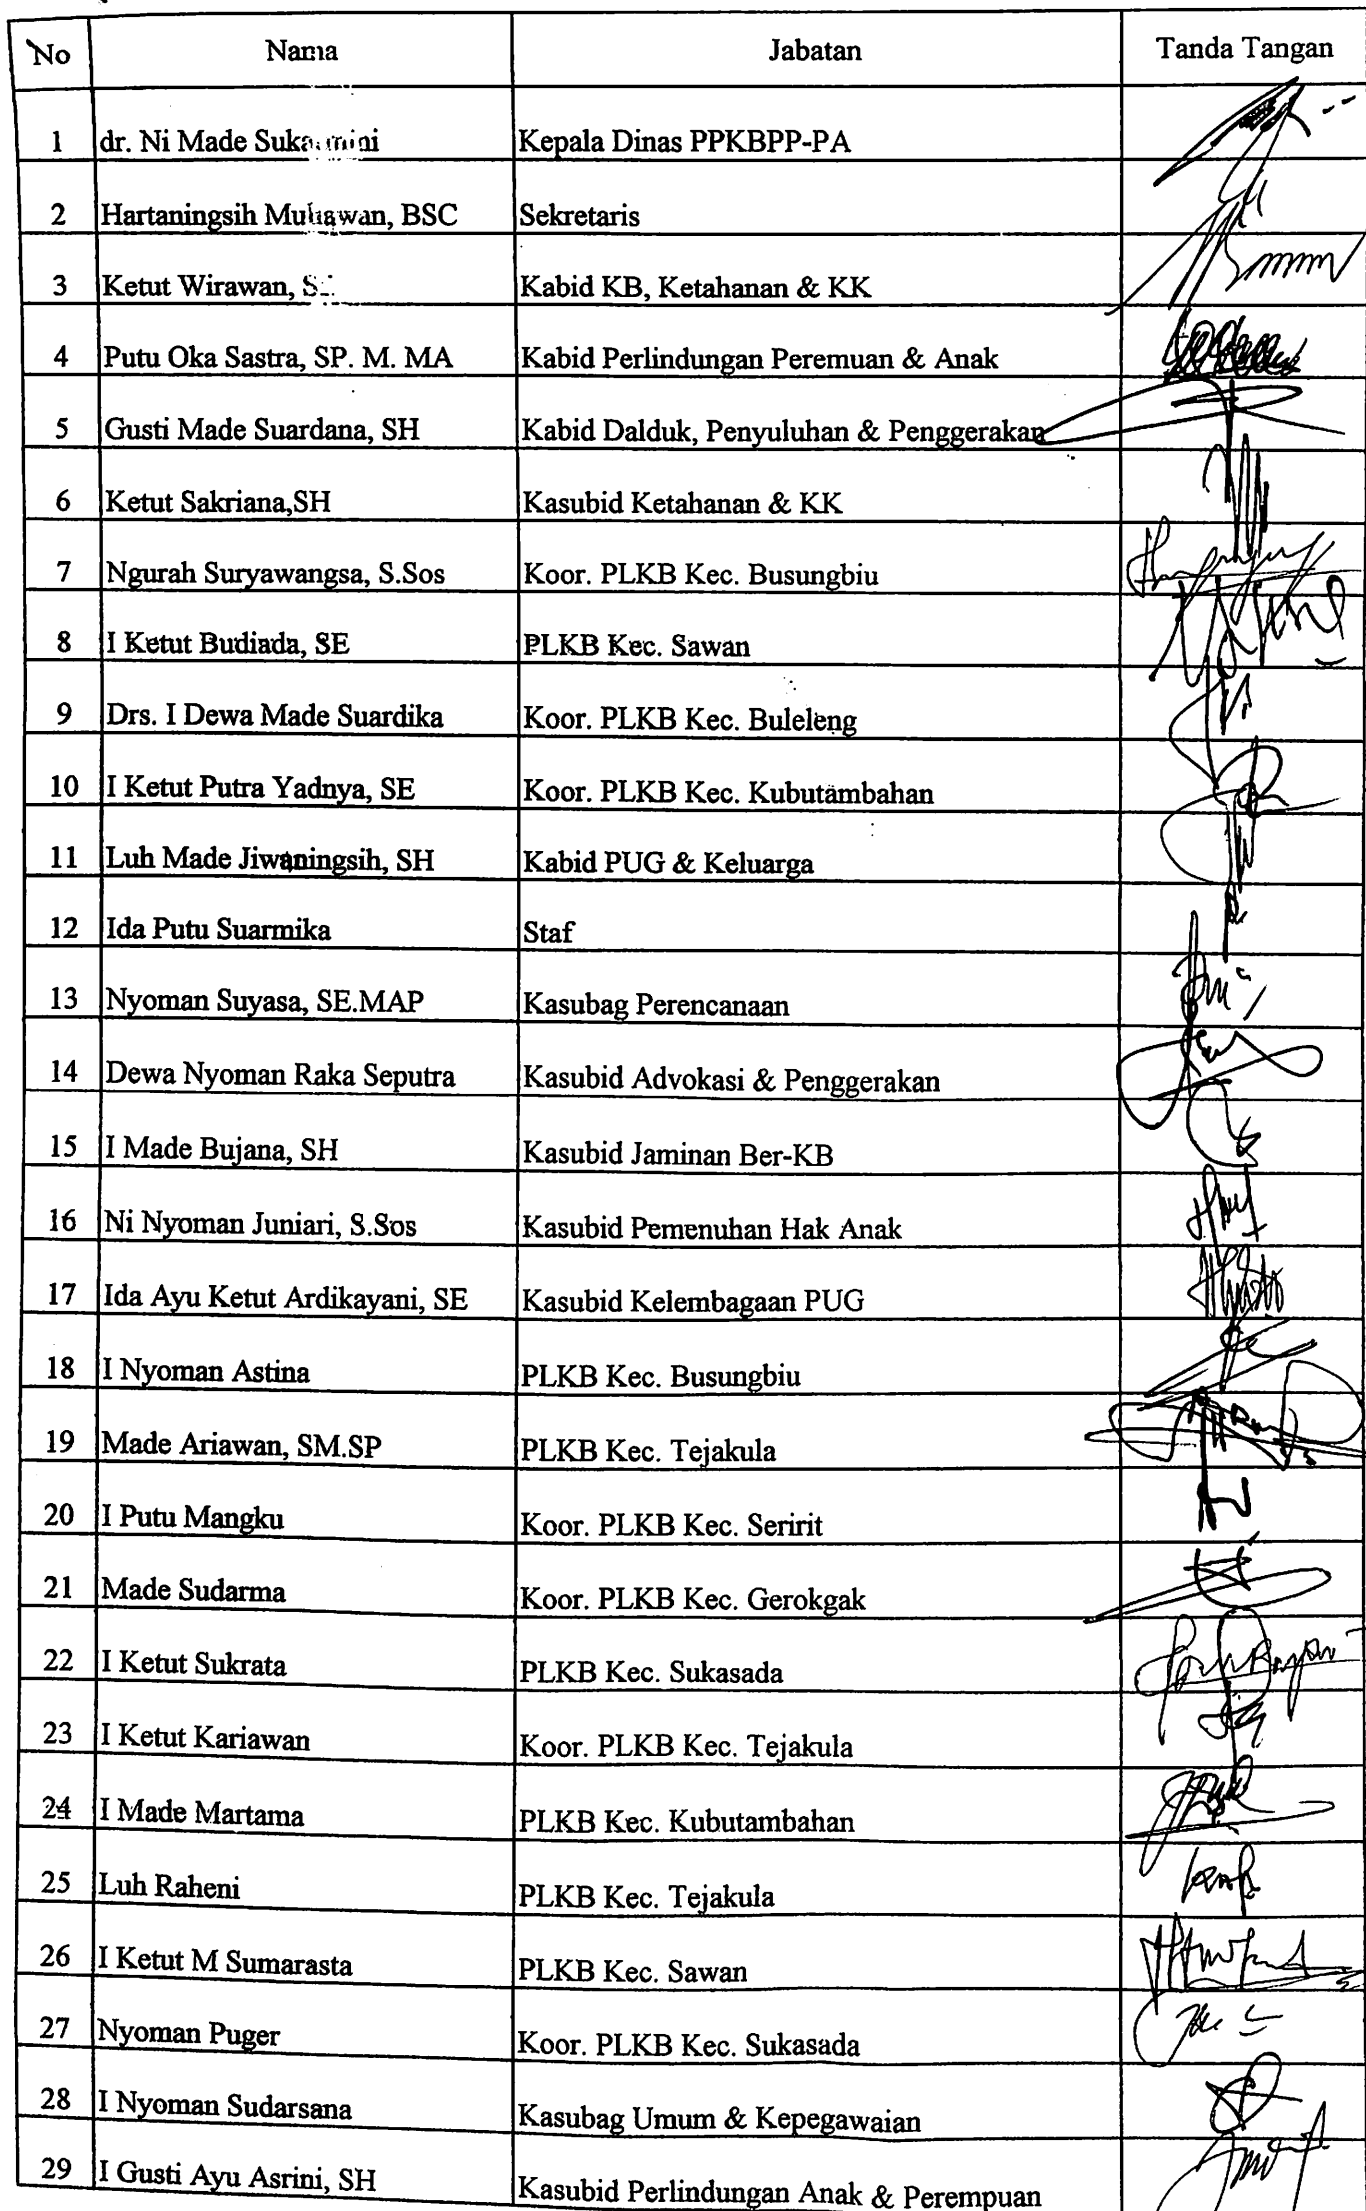 No Nama Jabatan Tanda Tangan
1 dr. Ni Made Kepala Dinas PPKBPP-PA
2 Hartaningsih Muliawan, BSC Sekretaris
3 Ketut Wirawan, Kabid KB, Ketahanan & KK
4 Putu Oka Sastra, SP. M. MA Kabid Perlindungan Peremuan & Anak
5 Gusti Made Suardana, SH Kabid Dalduk, Penyuluhan & Penggerakan
6 Ketut Sakriana,SH Kasubid Ketahanan & KK
7 Ngurah Suryawangsa, S.Sos Koor. PLKB Kec. Busungbiu
8 I Ketut Budiada, SE PLKB Kec. Sawan
9 Drs. I Dewa Made Suardika Koor. PLKB Kec. Buleleng
10 I Ketut Putra Yadnya, SE Koor. PLKB Kec. Kubutambahan
11 Luh Made Jiwaningsih, SH Kabid PUG & Keluarga
12 Ida Putu Suarmika Staf
13 Nyoman Suyasa, SE.MAP Kasubag Perencanaan
14 Dewa Nyoman Raka Seputra Kasubid Advokasi & Penggerakan
15 I Made Bujana, SH Kasubid Jaminan Ber-KB
16 Ni Nyoman Juniari, S.Sos Kasubid Pemenuhan Hak Anak
17 Ida Ayu Ketut Ardikayani, SE Kasubid Kelembagaan PUG
18 I Nyoman Astina PLKB Kec. Busungbiu
19 Made Ariawan, SM.SP PLKB Kec. Tejakula
20 I Putu Mangku Koor. PLKB Kec. Seririt
21 Made Sudarma Koor. PLKB Kec. Gerokgak
22 I Ketut Sukrata PLKB Kec. Sukasada
23 I Ketut Kariawan Koor. PLKB Kec. Tejakula
24 I Made Martama PLKB Kec. Kubutambahan
25 Luh Raheni PLKB Kec. Tejakula
26 I Ketut M Sumarasta PLKB Kec. Sawan
27 Nyoman Puger Koor. PLKB Kec. Sukasada
28 I Nyoman Sudarsana Kasubag Umum & Kepegawaian
29 I Gusti Ayu Asrini, SH Kasubid Perlindungan Anak & Perempuan